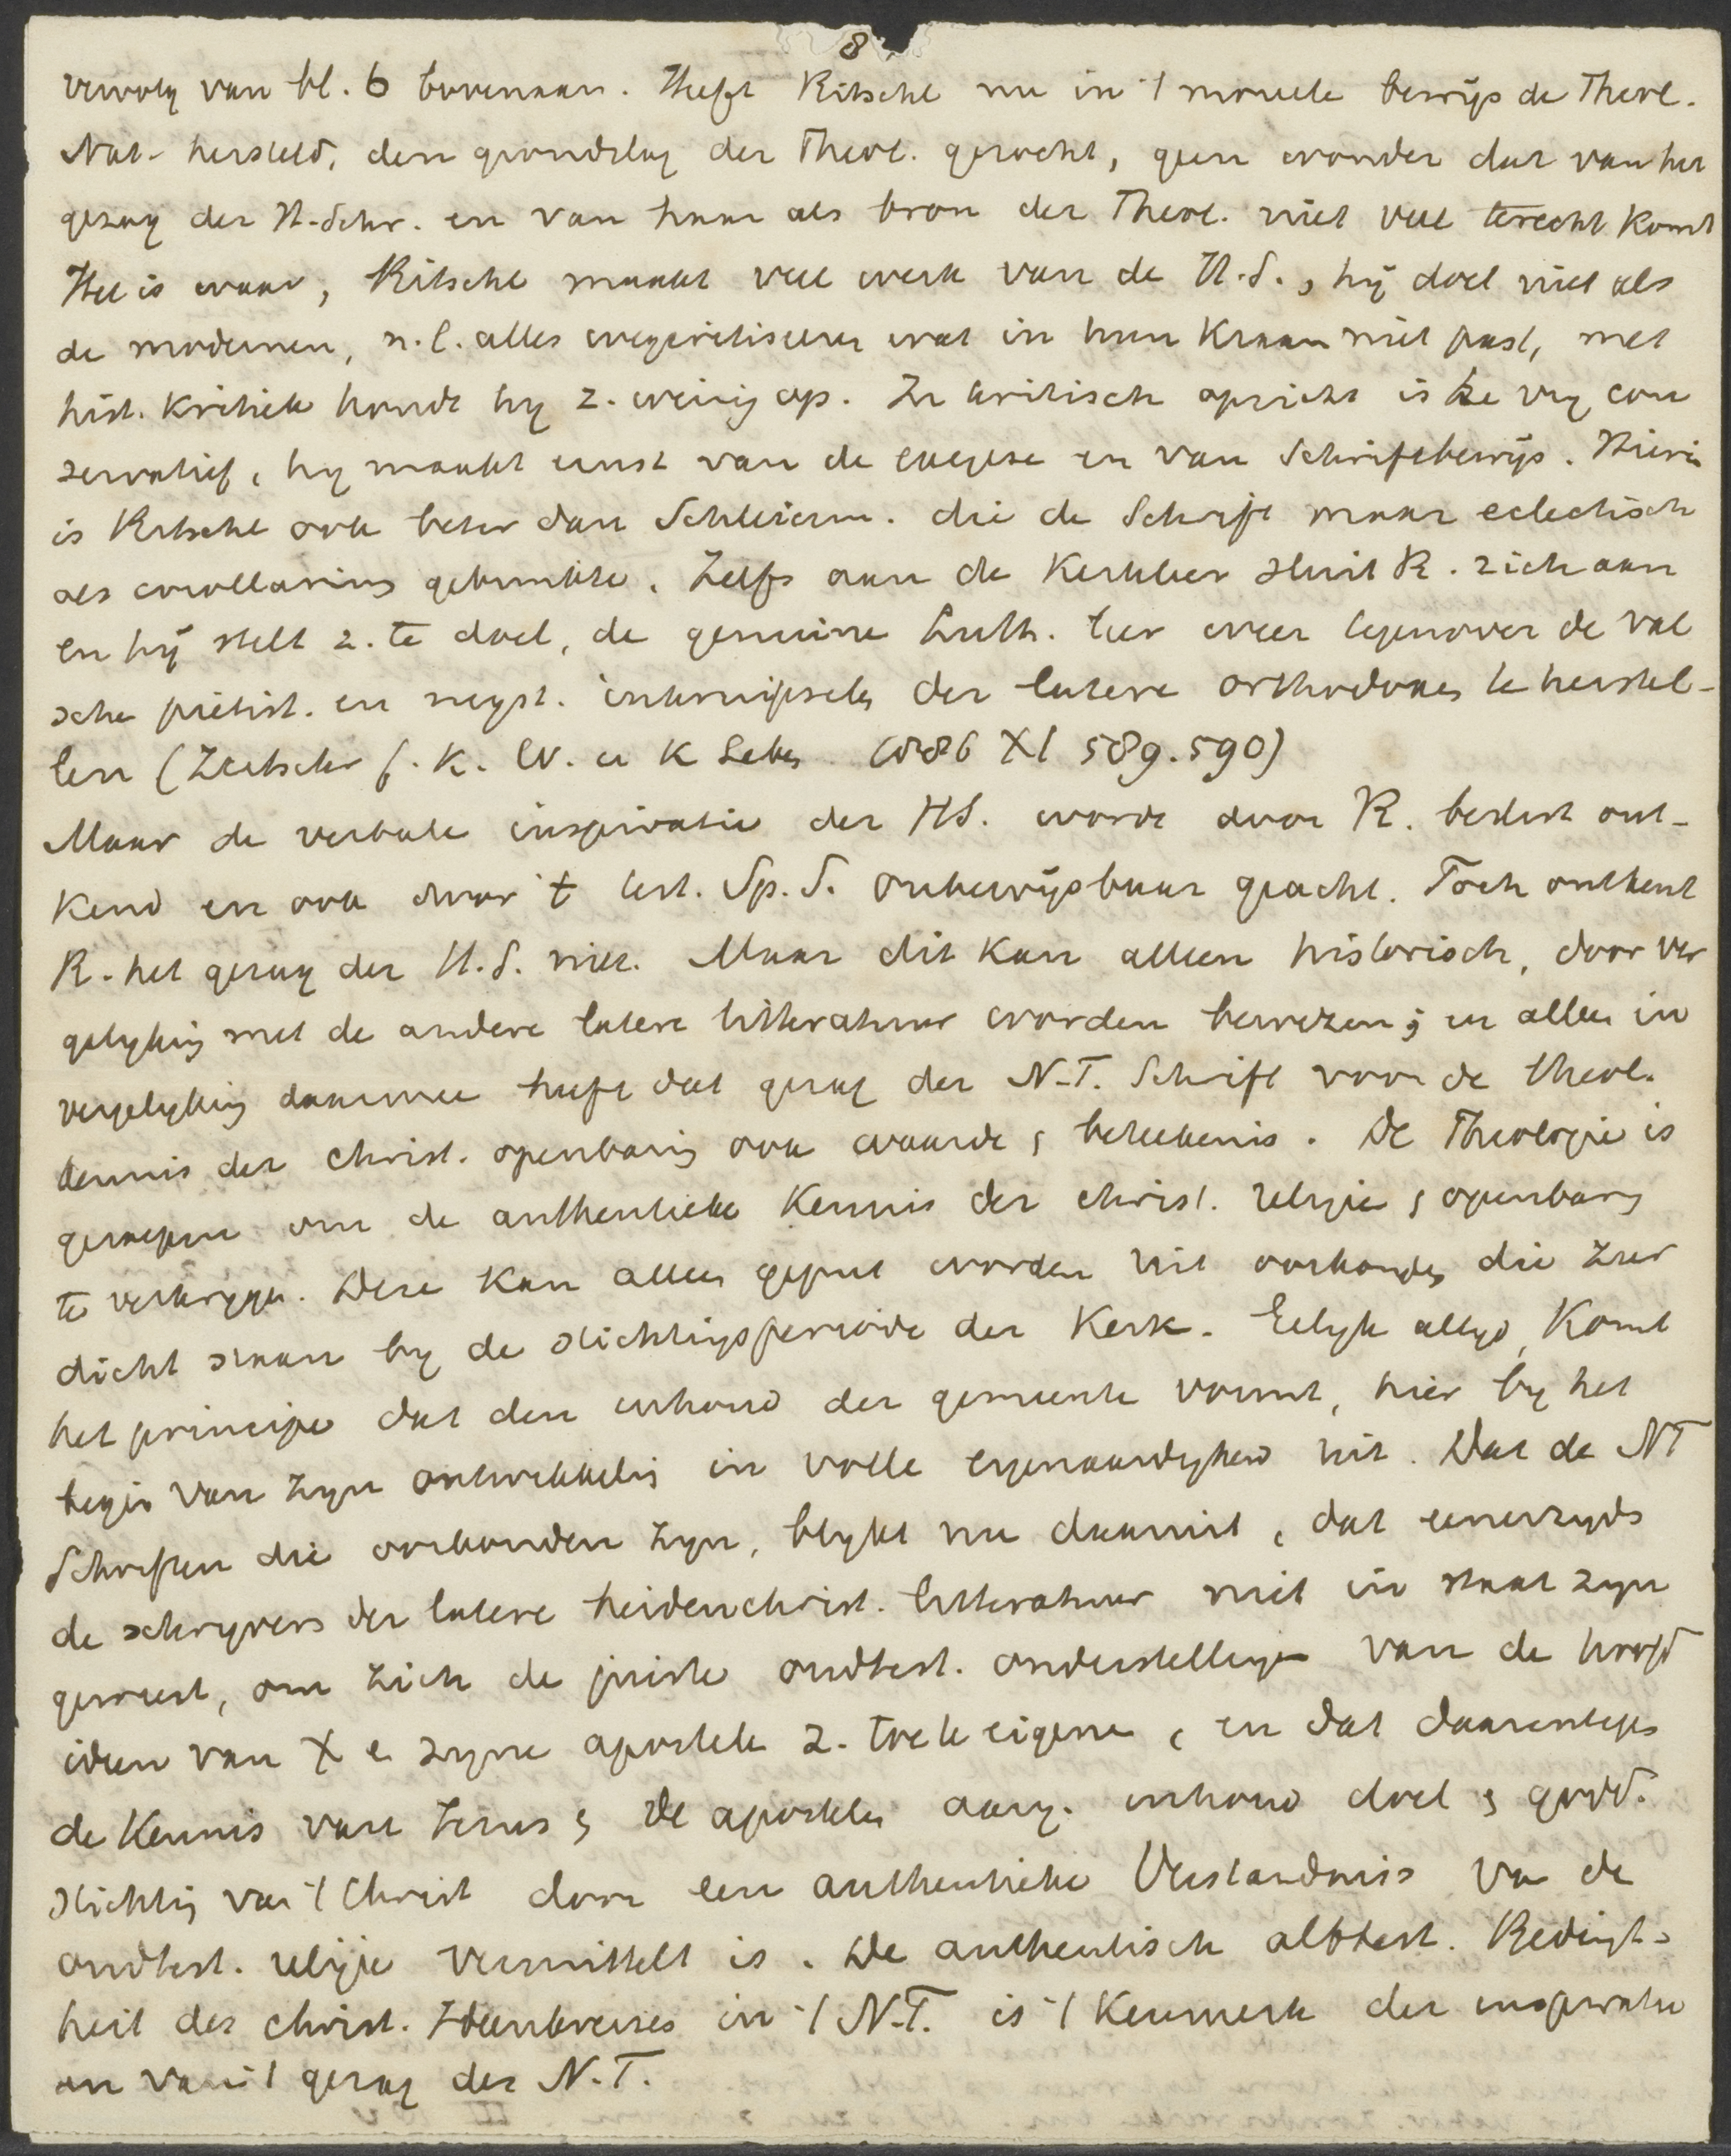 8
vervolg van bl. 6 bovenaan. Heeft Ritschl nu in 't moreele bewijs de Theol.
Nat. hersteld, den grondslag der Theol. gezocht, geen wonder dat van het
gezag der H. Schr. en van haar als bron der Theol. niet veel terecht komt
Het is waar, Ritschl maakt veel werk van de H.S., hij doet niet als
de modernen, n.l. alles wegcritiseeren wat in hun kraam niet past, met
hist. kritiek houdt hy z. weinig op. In kritisch opzicht is hy con
servatief, hy maakt ernst van de exegese en van Schriftbewijs. Hierin
is Ritschl ook beter dan Schleierm. die de Schrift maar eclectisch
als corollarium gebruikte. Zelfs aan de Kerkleer sluit R. zich aan
en hij stelt z. te doel, de genuine Luth. leer weer tegenover de val
sche pietist. en myst. inkruipsels der latere orthodoxie te herstel-
len (Zeitschr f. K. W. u K Leben 1886 XI 589.590)
Maar de verbale inspiratie der HS. wordt door R. beslist ont-
kend en ook door 't test. Sp. S. onbewijsbaar geacht. Toch ontkent
R. het gezag der H.S. niet. Maar dit kan alleen historisch, door ver
gelyking met de andere latere litteratuur worden bewezen; en alleen in
vergelyking daarmee heeft dat gezag der N.T. Schrift voor de theol.
kennis der christ. openbaring ook waarde & beteekenis. De Theologie is
geroepen om de authentieke kennis der christ. religie & openbaring
te verkrygen. Deze kan alleen geput worden uit oorkonden die zeer
dicht staan by de stichtingsperiode der Kerk. Gelyk altyd, komt
het principe dat den inhoud der gemeente vormt, hier by het
begin van zyn ontwikkeling in volle eigenaardigheid uit. Dat de NT
Schriften die oorkonden zyn, blykt nu daaruit, dat eenerzyds
de schryvers der latere heidenchrist. litteratuur niet in staat zyn
geweest, om zich de juiste oudtest. onderstellingen van de hoofd
ideen van X en zyne apostelen z. toe te eigenen, en dat daarentegen
de kennis van Jezus & de apostelen aang. inhoud doel & godd.
stichting van 't Christ door een authentieke Verständniss van de
oudtest. religie vermittelt is. De authentisch alttest. Bedingt-
heit des christ. Ideenkreises in 't N.T. is 't kenmerk der inspiratie
en van 't gezag des N.T.